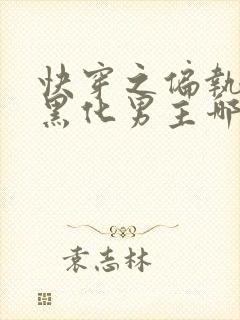 快穿之偏執
黑化男主哪
袁志林